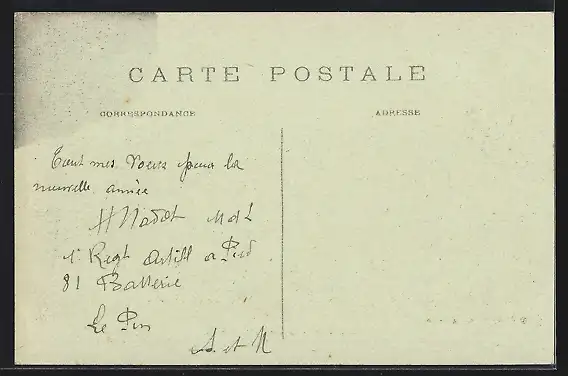 CARTE POSTALE
CORRESPONDANCE
ADRESSE
Tout mes voeux pour la
nouvelle année
H Nadot MdL
1r Regt Artill a Pied
81 Batterie
Le Pin
S. et M